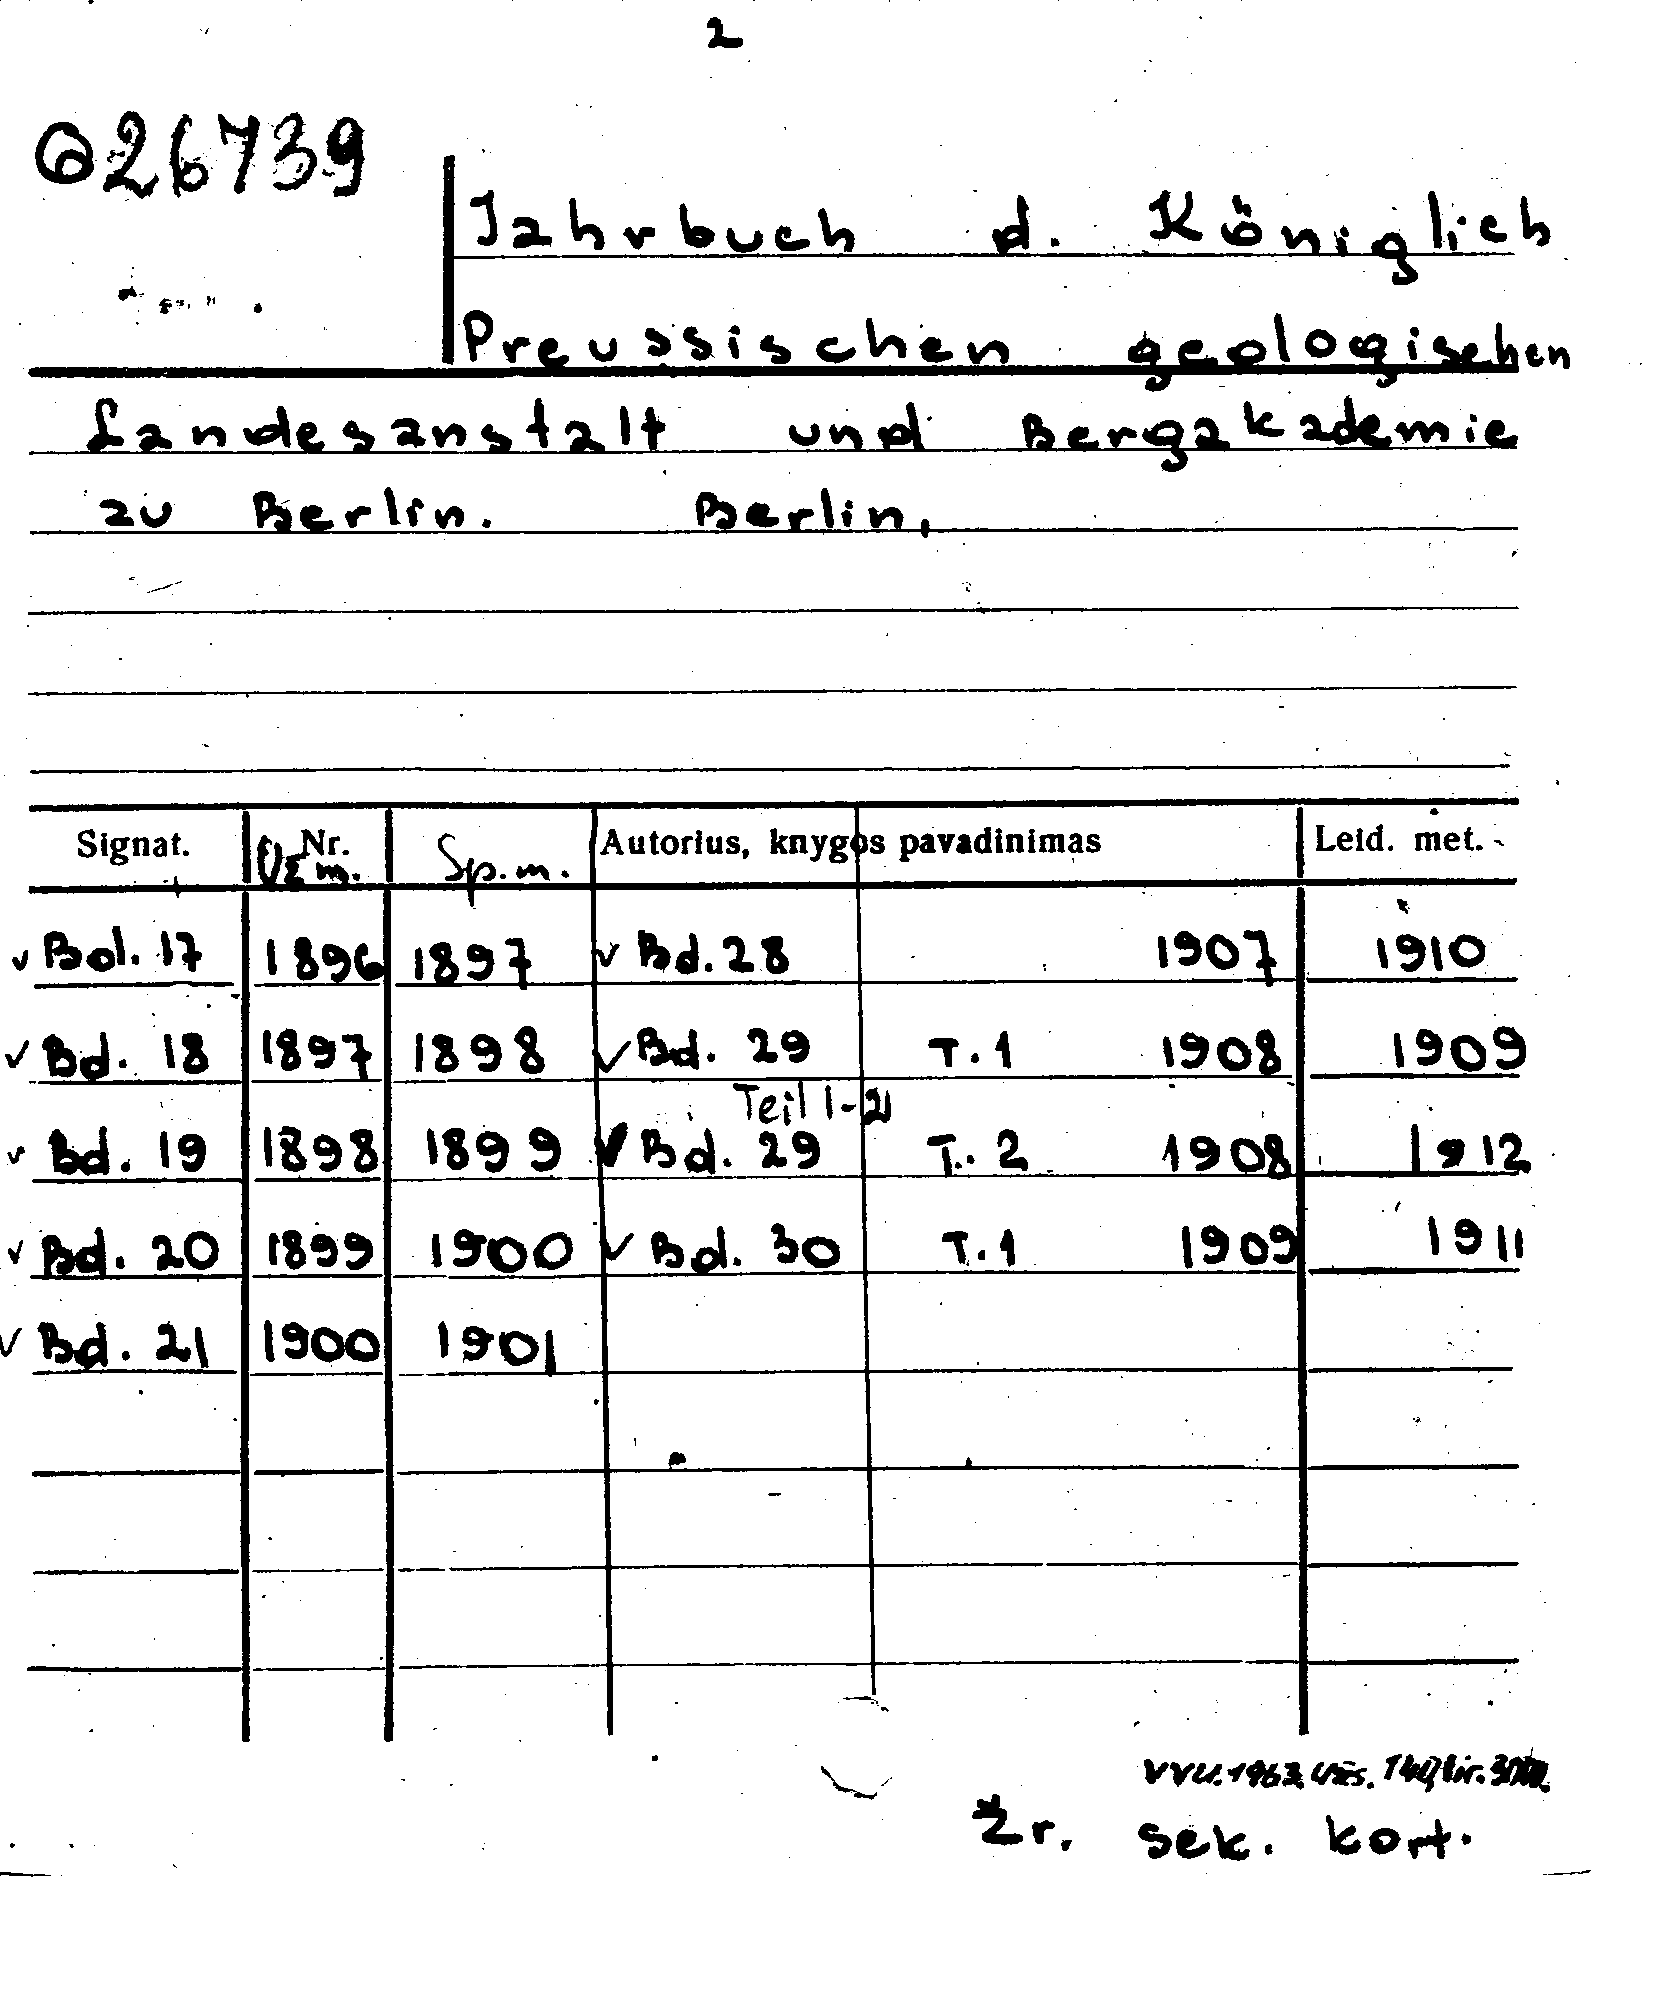 2
026739
Jahrbuch d. Königlich
Preussischen geologischen
Landesanstalt und Bergakademie
zu Berlin. Berlin,
Signat. Nr. Autorius, knygos pavadinimas Leid. met.
Sp.m.
v Bd. 17 1896 1897 v Bd. 28 1907 1910
v Bd. 18 1897 1898 v Bd. 29 T. 1 1908 1909
Teil 1-2
v Bd. 19 1898 1899 v Bd. 29 T. 2 1908 1912
v Bd. 20 1899 1900 v Bd. 30 T. 1 1909 1911
v Bd. 21 1900 1901
VVU. 1963
Žr. sek. kort.